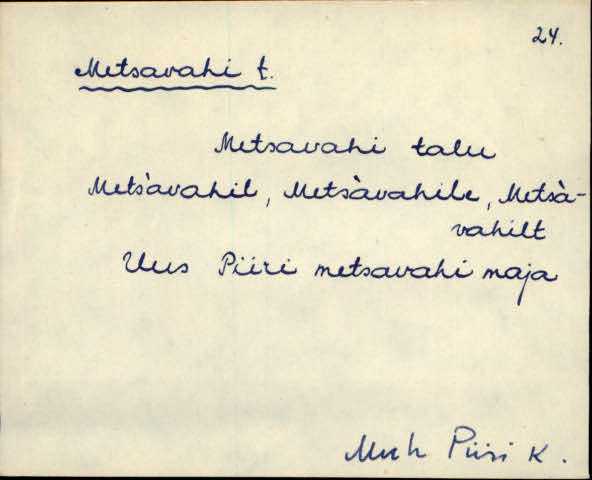 24.
Metsavahi t.
Metsavahi talu
Mets'avahil, Metsàvahile, Metsà-
vahilt
Uus Piiri metsavahi maja
Muh Piiri K.